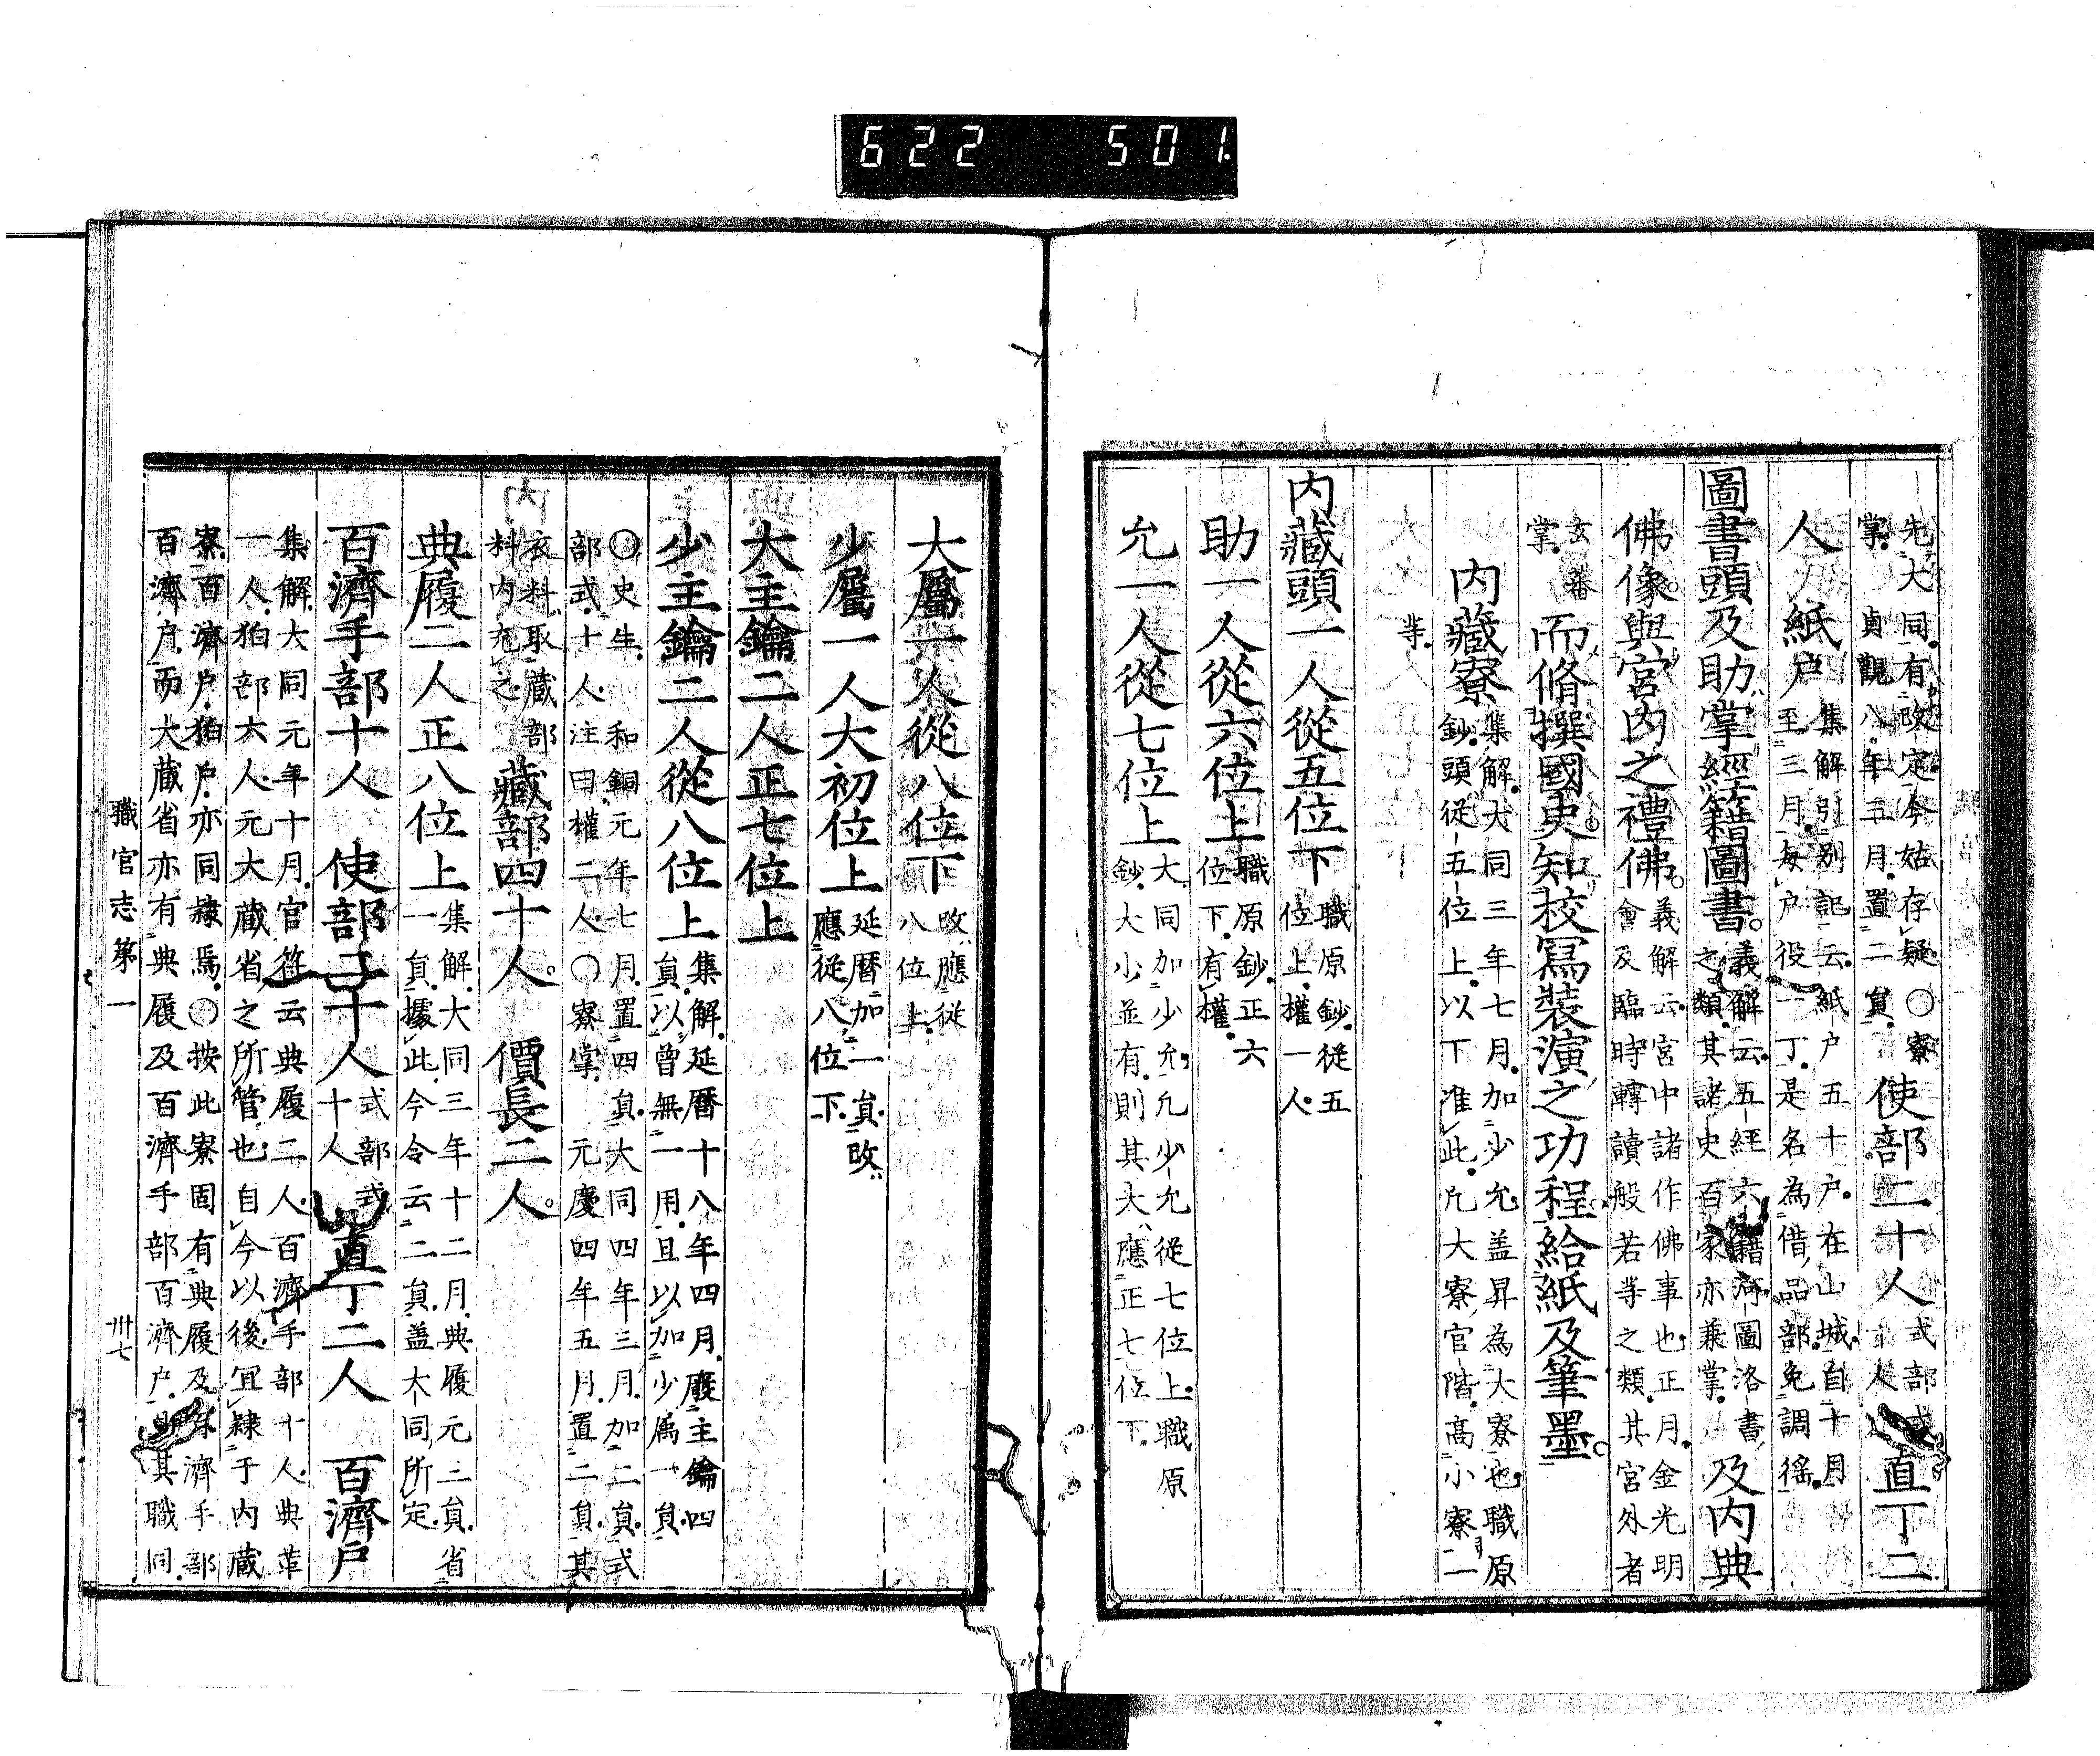 622 501
先大同有改定今姑存疑○寮
掌貞觀八年五月置二員
使部二十人
式部式
人
直丁二
人
紙户
集解引别記云紙户五十户在山城自十月
至三月每户役一丁是名為借品部免調徭
圖書頭及助掌經籍圖書
義解云五經六籍河圖洛書
之類其諸史百家亦兼掌
及内典
佛像與宮内之禮佛
義解云宮中諸作佛事也正月金光明
會及臨時轉讀般若等之類其宮外者
玄蕃
掌
而脩撰國史知校寫装潢之功程給紙及筆墨
内藏寮
集解大同三年七月加少允盖昇為大寮也職原
鈔頭從五位上以下准此凡大寮官階高小寮一
等
内藏頭一人從五位下
職原鈔從五
位上權一人
助一人從六位上
職原鈔正六
位下有權
允一人從七位上
大同加少允允少允從七位上職原
鈔大小並有則其大應正七位下
大屬一人從八位下
改應從
八位上
少屬一人大初位上
延暦加一員改
應從八位下
大主鑰二人正七位上
少主鑰二人從八位上
集解延暦十八年四月廢主鑰四
員以曾無一用且以加少属一員
○史生和銅元年七月置四員大同四年三月加二員式
部式十人注曰權二人○寮掌元慶四年五月置二員其
衣料取蔵部
料内充之
藏部四十人
價長二人
典履二人正八位上
集解大同三年十二月典履元三員省
一員據此今令云二員盖大同所定
百濟手部十人
使部二十人
式部式
十人
直丁二人
百濟戶
集解大同元年十月官符云典履二人百濟手部十人典革
一人狛部六人元大蔵省之所管也自今以後宜隷于内蔵
寮百濟户狛户亦同隷焉○按此寮固有典履及百濟手部
百濟户而大蔵省亦有典履及百濟手部百濟户其職同
職官志第一
卅七